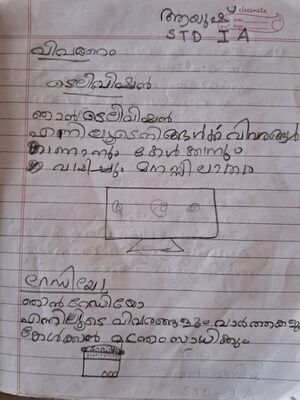 classmate
ആയുഷ്
STD I A
വിവരണം
ടെലിവിഷൻ
ഞാൻ ടെലിവിഷൻ
എന്നിലൂടെ നിങ്ങൾക്ക് വിവരങ്ങൾ
കാണാനും കേൾക്കാനും
വായിച്ചും മനസ്സിലാക്കാം
റേഡിയോ
ഞാൻ റേഡിയോ
എന്നിലൂടെ വിവരങ്ങളും വാർത്തകളും
കേൾക്കാൻ മാത്രം സാധിക്കും